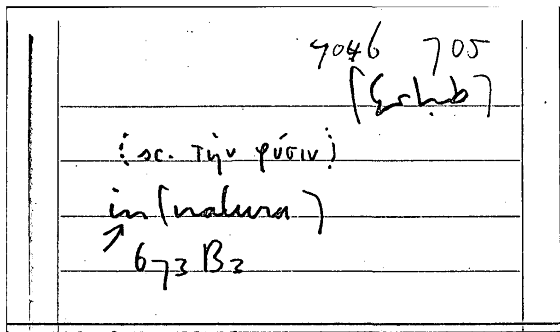 7046 705
(sc. τὴν φύσιν)
in (natura)
673 B2